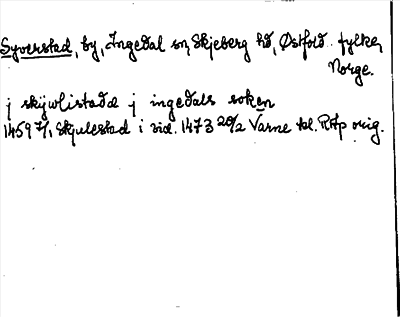 Syverstad, by, Ingedal sn, Skjeberg hd, Østfold fylke,
Norge.
j skijwlistadd j ingedals soken
1459 7/1 Skjulestad i vid. 1473 20/2 Varne kl. RAp orig.